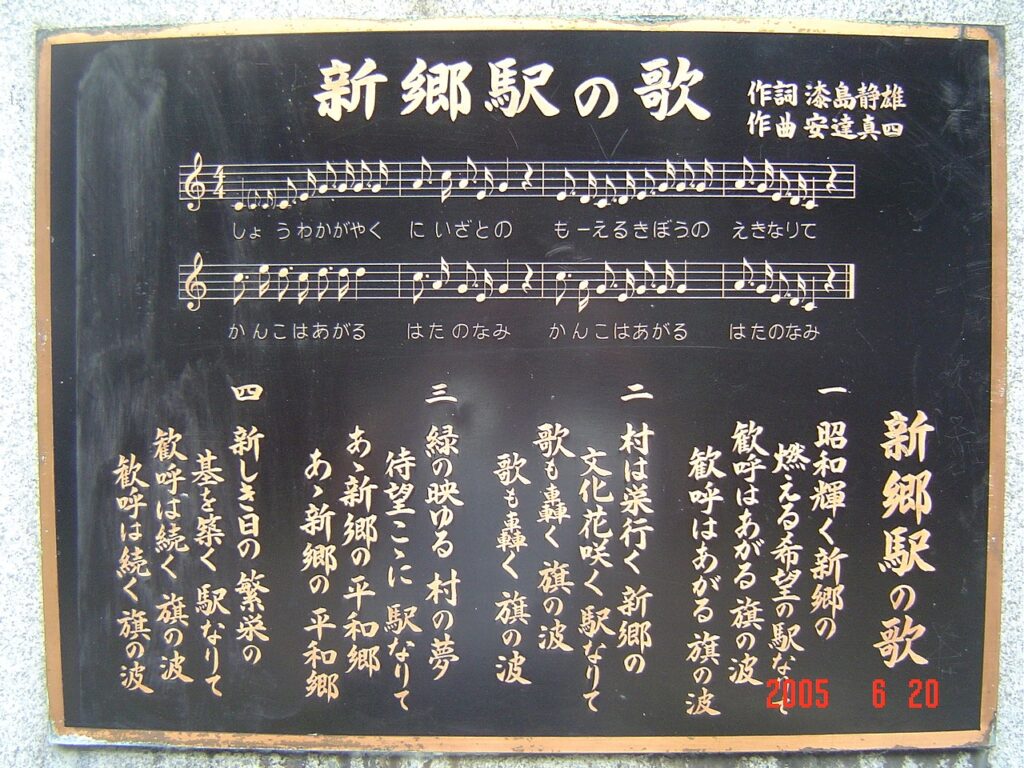 新郷駅の歌
作詞 漆島静雄
作曲 安達真四
しょうわかがやく にいざとの もーえるきぼうの えきなりて
かんこはあがる はたのなみ かんこはあがる はたのなみ
新郷駅の歌
一 昭和輝く新郷の
燃える希望の駅なりて
歓呼はあがる 旗の波
歓呼はあがる 旗の波
二 村は栄行く 新郷の
文化花咲く 駅なりて
歌も轟く 旗の波
歌も轟く 旗の波
三 緑の映ゆる 村の夢
待望こゝに 駅なりて
あゝ新郷の 平和郷
あゝ新郷の 平和郷
四 新しき日の 繁栄の
基を築く 駅なりて
歓呼は続く 旗の波
歓呼は続く 旗の波
2005 6 20